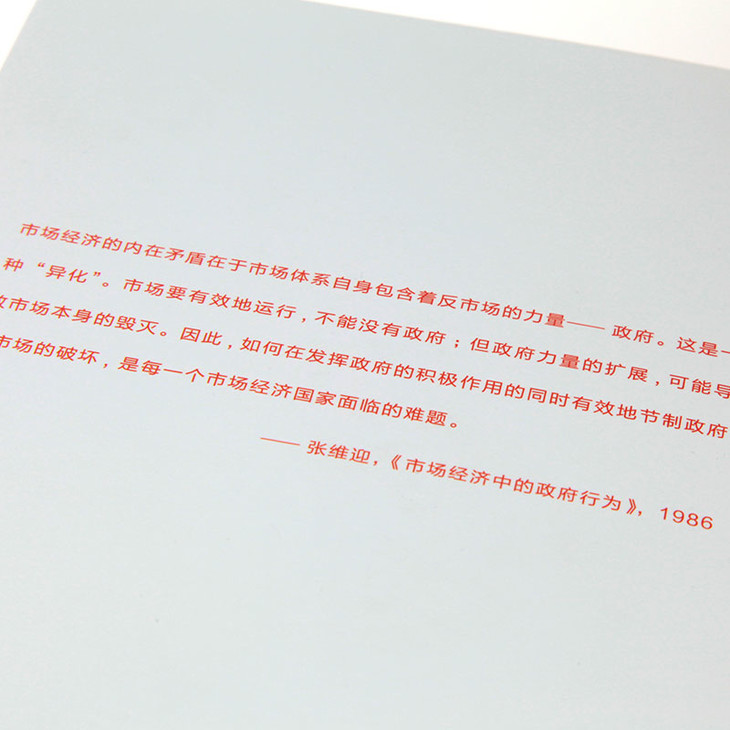 市场经济的内在矛盾在于市场体系自身包含着反市场的力量——政府。这是一
种“异化”。市场要有效地运行，不能没有政府；但政府力量的扩展，可能导
致市场本身的毁灭。因此，如何在发挥政府的积极作用的同时有效地节制政府
市场的破坏，是每一个市场经济国家面临的难题。
——张维迎，《市场经济中的政府行为》，1986